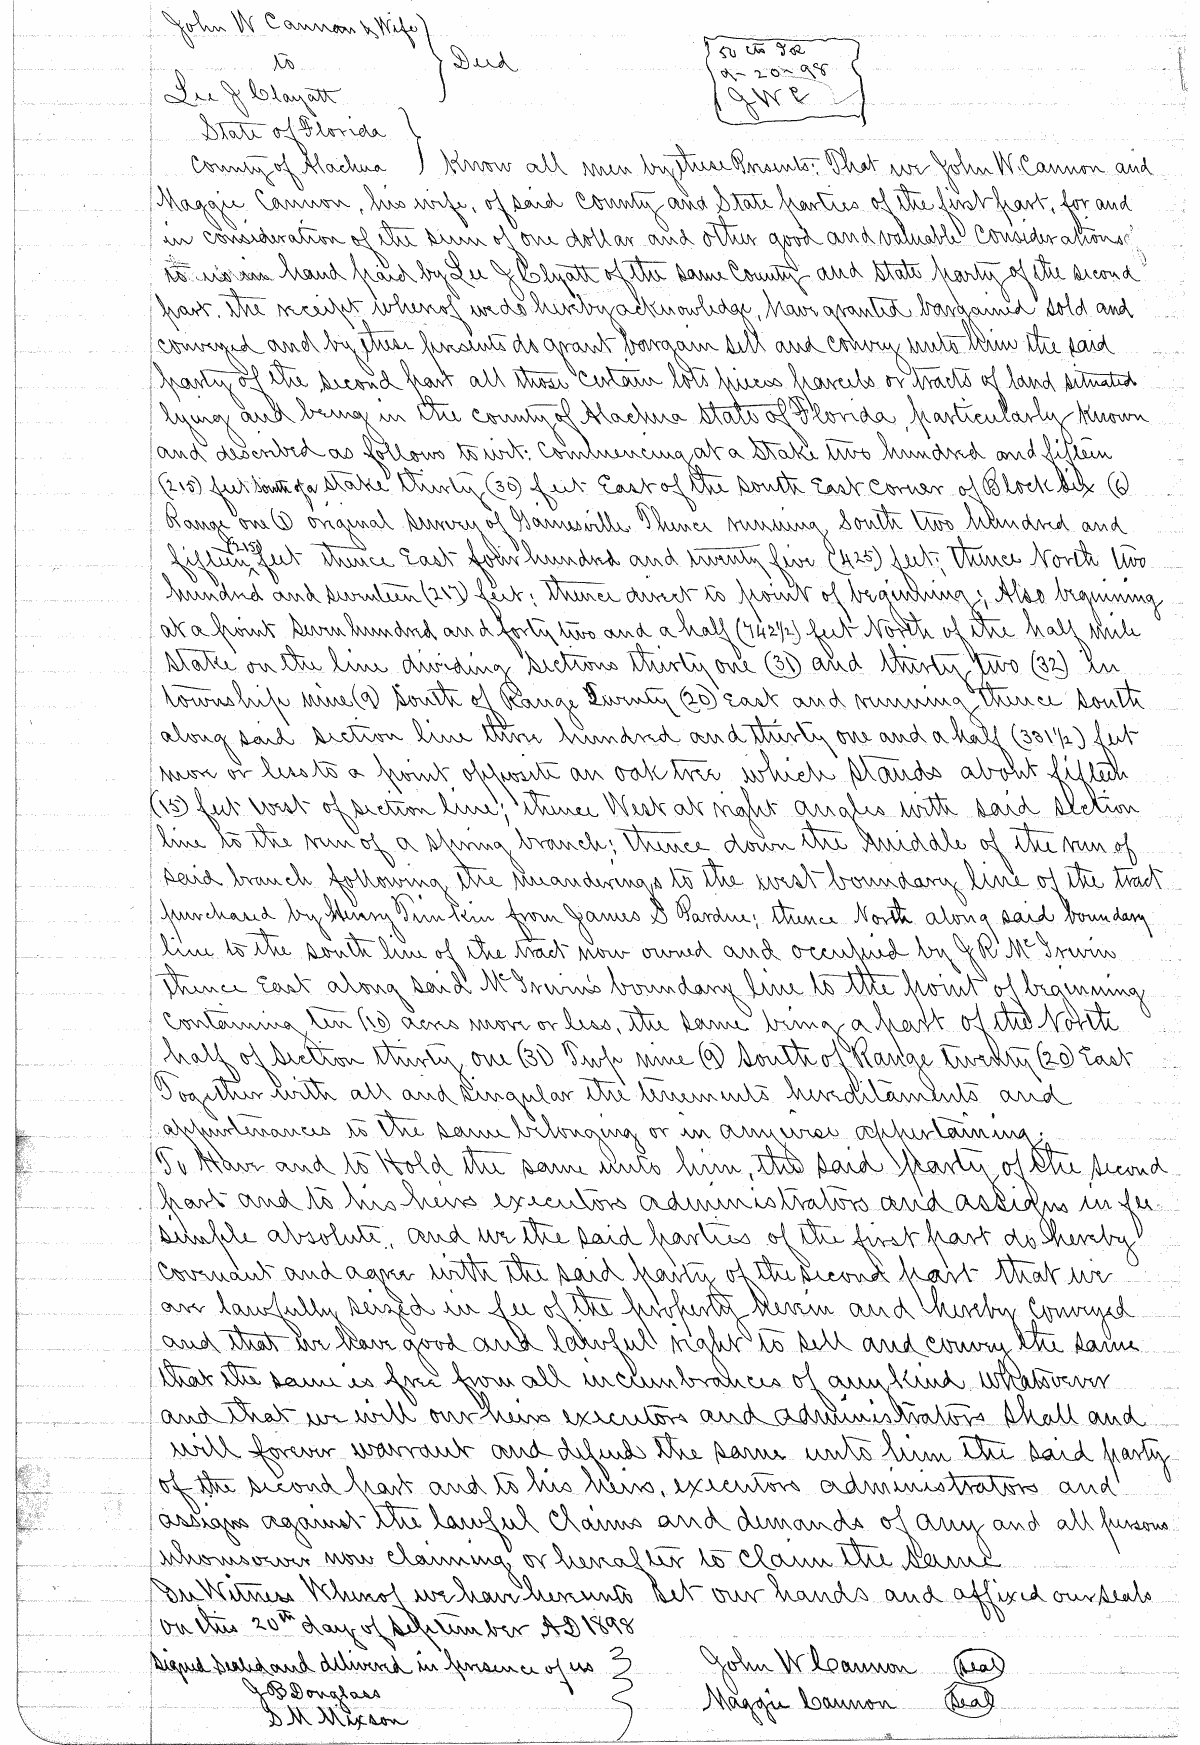 John W Cannon & Wife
to
Deed
Lee J Clayatt
State of Florida
County of Alachua
50 cts I R
9-20-98
JWC
Know all men by these Presents: That we John W. Cannon and
Maggie Cannon, his wife, of said County and State parties of the first part, for and
in consideration of the sum of one dollar and other good and valuable considerations
to us in hand paid by Lee J Clyatt of the same County and state party of the second
part. the receipt whereof we do hereby acknowledge, have granted bargained sold and
conveyed and by these presents do grant bargain sell and convey unto him the said
party of the second part all those certain lots pieces parcels or tracts of land situated
lying and being in the county of Alachua State of Florida, particularly known
and described as follows to wit: Commencing at a stake two hundred and fifteen
(215) feet South of a stake thirty (30) feet East of the South East corner of Block six (6)
Range one (1) original survey of Gainesville Thence running South two hundred and
fifteen (215) feet thence East four hundred and twenty five (425) feet; thence North two
hundred and seventeen (217) feet; thence direct to point of beginning; Also beginning
at a point seven hundred and forty two and a half (742½) feet North of the half mile
stake on the line dividing sections thirty one (31) and thirty two (32) In
township nine (9) South of Range Twenty (20) East and running thence south
along said section line three hundred and thirty one and a half (331½) feet
more or less to a point opposite an oak tree which stands about fifteen
(15) feet west of section line; thence West at right angles with said section
line to the run of a spring branch; thence down the middle of the run of
said branch following the meanderings to the west boundary line of the tract
purchased by Henry Timkin from James S Pardue; thence North along said boundary
line to the south line of the tract now owned and occupied by J R McIrwin
thence East along said McIrwin's boundary line to the point of beginning
containing ten (10) acres more or less, the same being a part of the North
half of section thirty one (31) Twp nine (9) South of Range twenty (20) East
Together with all and singular the tenements hereditaments and
appurtenances to the same belonging or in anywise appertaining.
To Have and to Hold the same unto him, the said party of the second
part and to his heirs executors administrators and assigns in fee
simple absolute, and we the said parties of the first part do hereby
covenant and agree with the said party of the second part that we
are lawfully seized in fee of the property herein and hereby conveyed
and that we have good and lawful right to sell and convey the same
that the same is free from all incumbrances of any kind whatsoever
and that we will our heirs executors and administrators shall and
will forever warrant and defend the same unto him the said party
of the second part and to his heirs, executors administrators and
assigns against the lawful claims and demands of any and all persons
whomsoever now claiming or hereafter to claim the same
In Witness Whereof we have hereunto set our hands and affixed our seals
on this 20th day of September A.D 1898
Signed sealed and delivered in presence of us
John W Cannon (Seal)
J B Douglass
Maggie Cannon (Seal)
S M Mixson